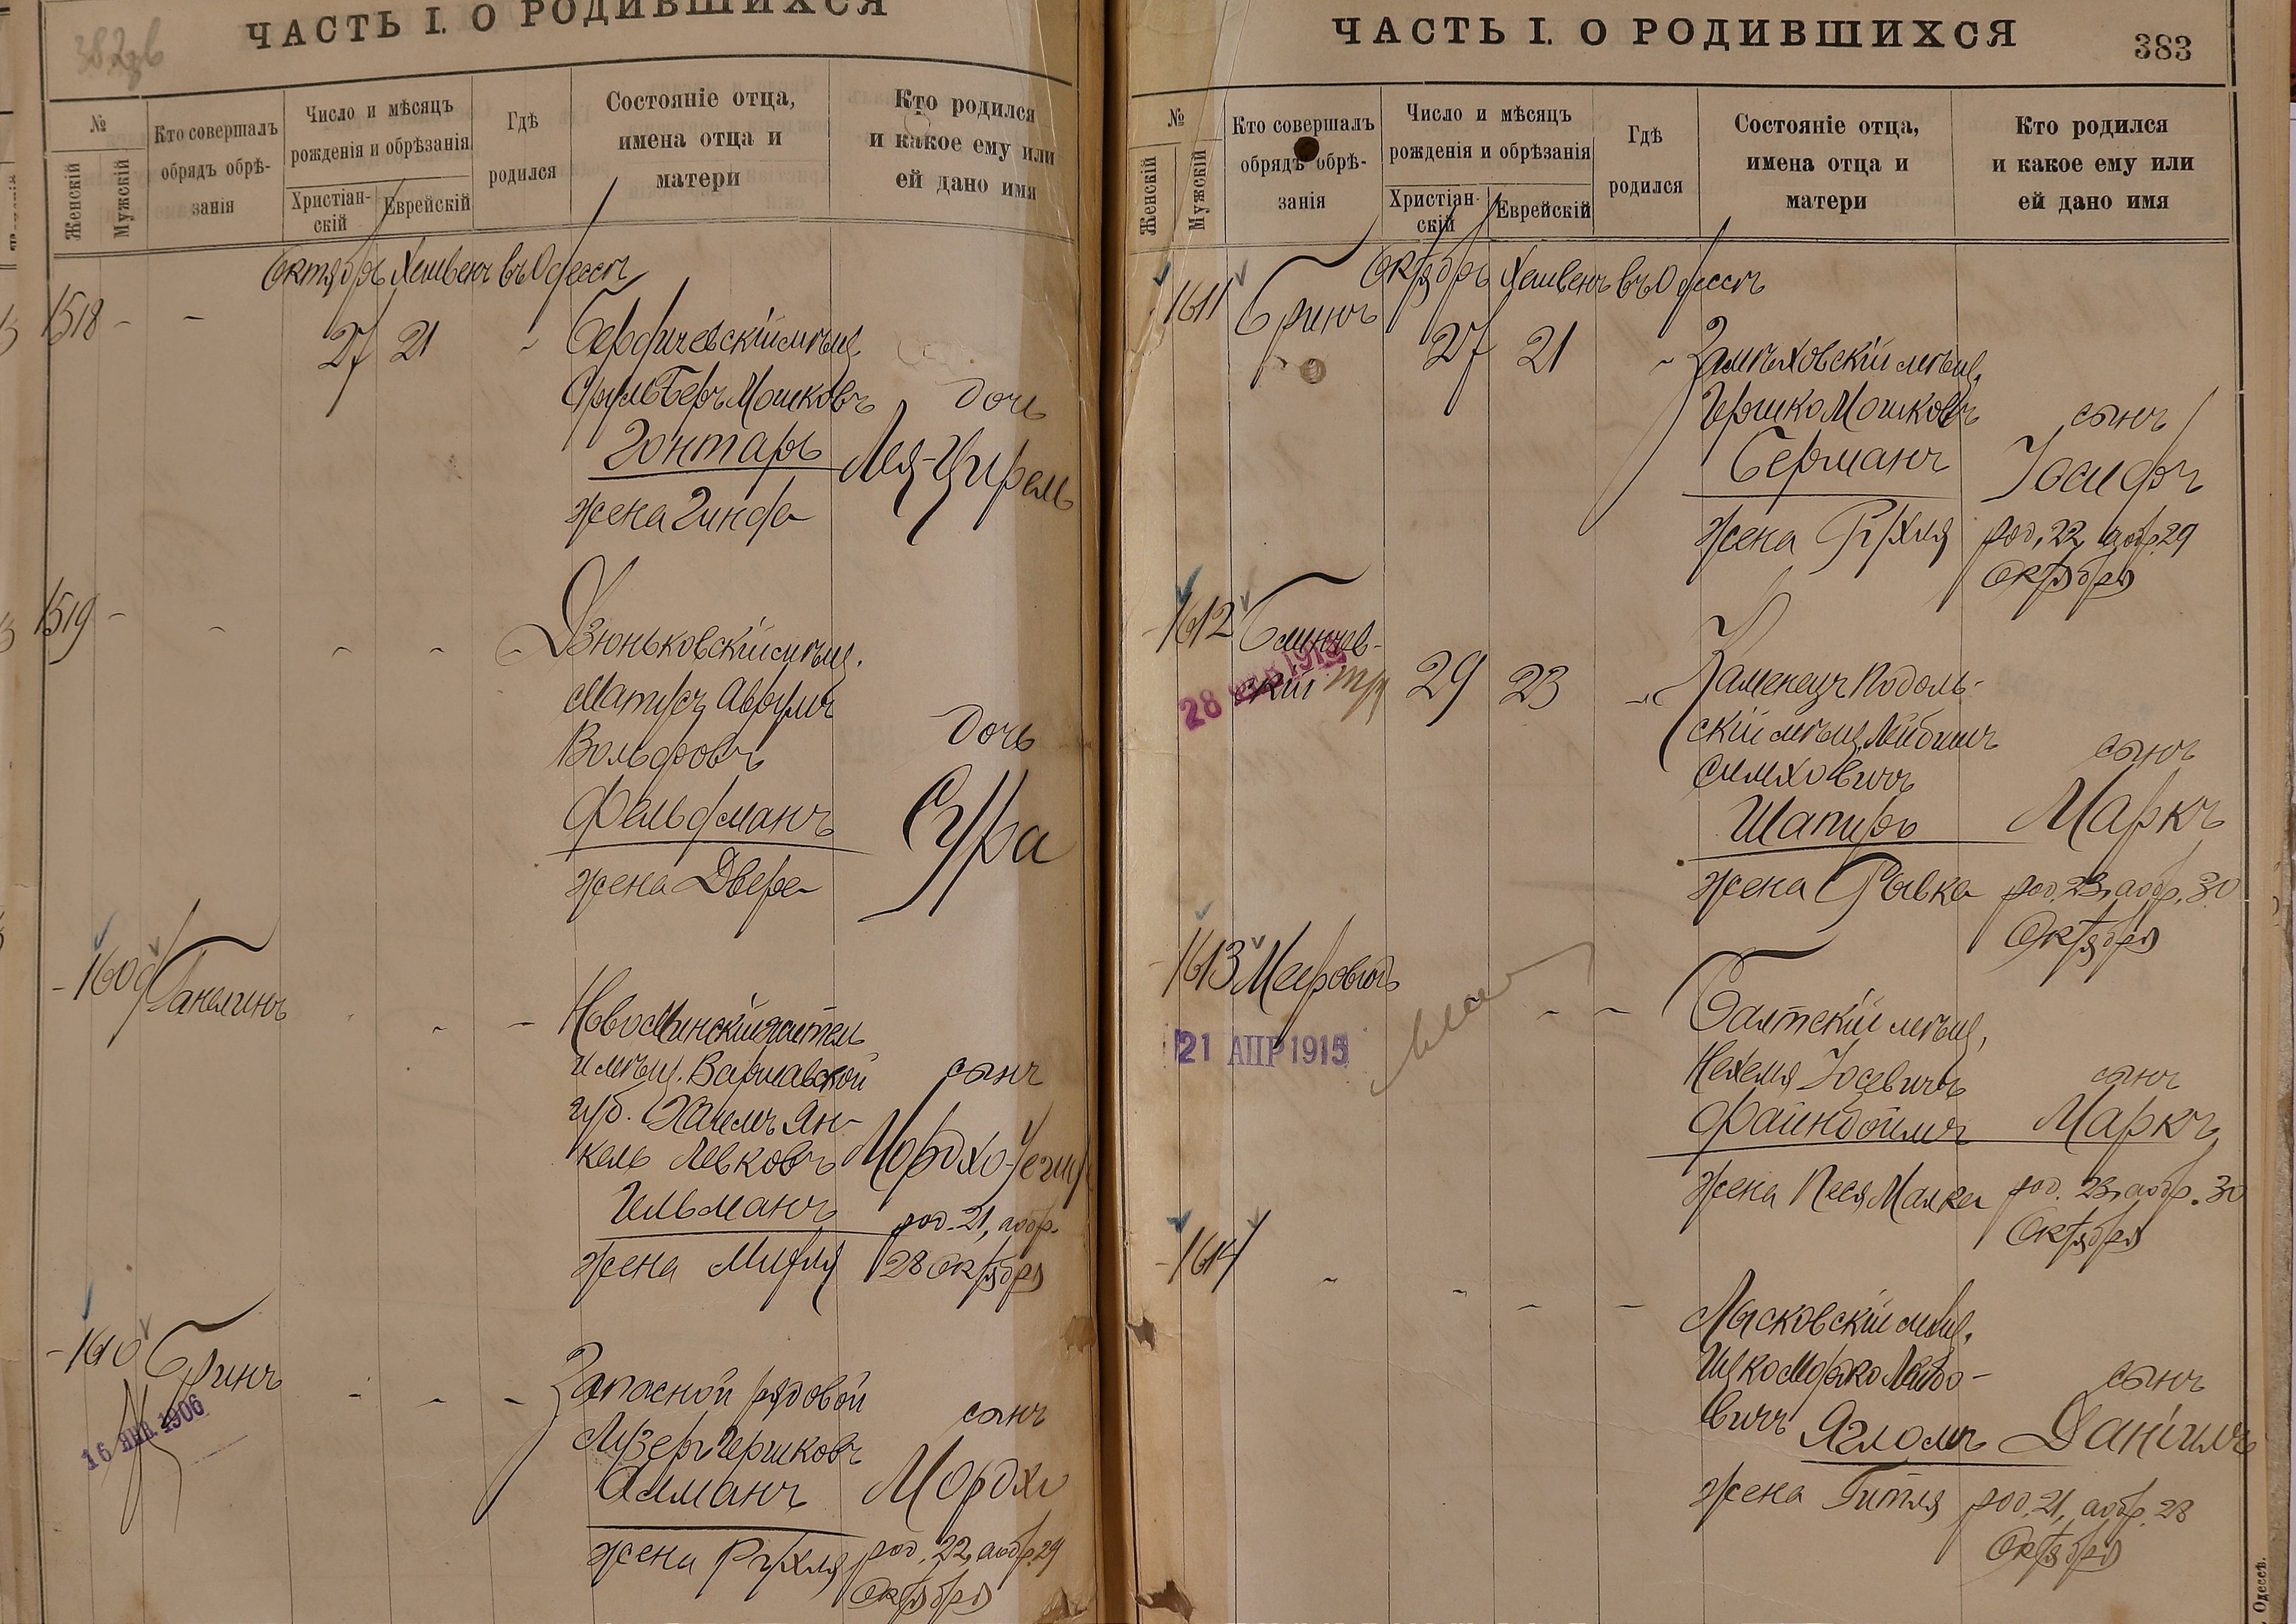 ЧАСТЬ I. О РОДИВШИХСЯ
№
Женскій
Мужскій
Кто совершалъ
обрядъ обрѣ-
занія
Число и мѣсяцъ
рожденія и обрѣзанія
Христіан-
скій
Еврейскій
Гдѣ
родился
Состояніе отца,
имена отца и
матери
Кто родился
и какое ему или
ей дано имя
Октябрь Хешвенъ въ Одессѣ
1518 - -
27 21
Бердичевскій мѣщ.
Сруль Беръ Мошковъ
дочь
Гонтарь
Лея-Цирель
жена Гинда
1519 - -
Дзюньковскій мѣщ.
Матусъ Аврумъ
Вольфовъ
дочь
Фельдманъ
Сура
жена Двера
1609
Ганелинъ
Новоминскій житель
и мѣщ. Варшавской
сынъ
губ. Хаимъ Ян-
кель Левковъ
Мордхо-
Гильманъ
род. 21, а обр.
жена
28 Октября
1610 Бринъ
16 ЯНВ. 1906
Запасной рядовой
Лузеръ Гершковъ
сынъ
Алманъ
Мордхо
жена Рухля
род. 22, а обр. 29
Октября
ЧАСТЬ I. О РОДИВШИХСЯ
383
№
Женскій
Мужскій
Кто совершалъ
обрядъ обрѣ-
занія
Число и мѣсяцъ
рожденія и обрѣзанія
Христіан-
скій
Еврейскій
Гдѣ
родился
Состояніе отца,
имена отца и
матери
Кто родился
и какое ему или
ей дано имя
Октябрь Хешвенъ въ Одессѣ
1611 Бринъ
27 21
Замѣховскій мѣщ.
Гершко Мошковъ
сынъ
Берманъ
Іосифъ
жена Рухля
род. 22, а обр. 29
Октября
1612 Блинчев-
скій
28 1913
29 23
Каменецъ Подоль-
скій мѣщ. Лейбишъ
Симховичъ
сынъ
Шапиро
Маркъ
жена Рывка
род. 23, а обр. 30
Октября
1613 Меировичъ
21 АПР 1915
Балтскій мѣщ.
Нехемя Іосевичъ
сынъ
Файнбоймъ
Маркъ
жена Песя Малка
род. 23, а обр. 30
Октября
1614
Лысковскій мѣщ.
Ицко Мордко Лейбо-
сынъ
вичъ Ягломъ
Даніилъ
жена Гитля
род. 21, а обр. 28
Октября